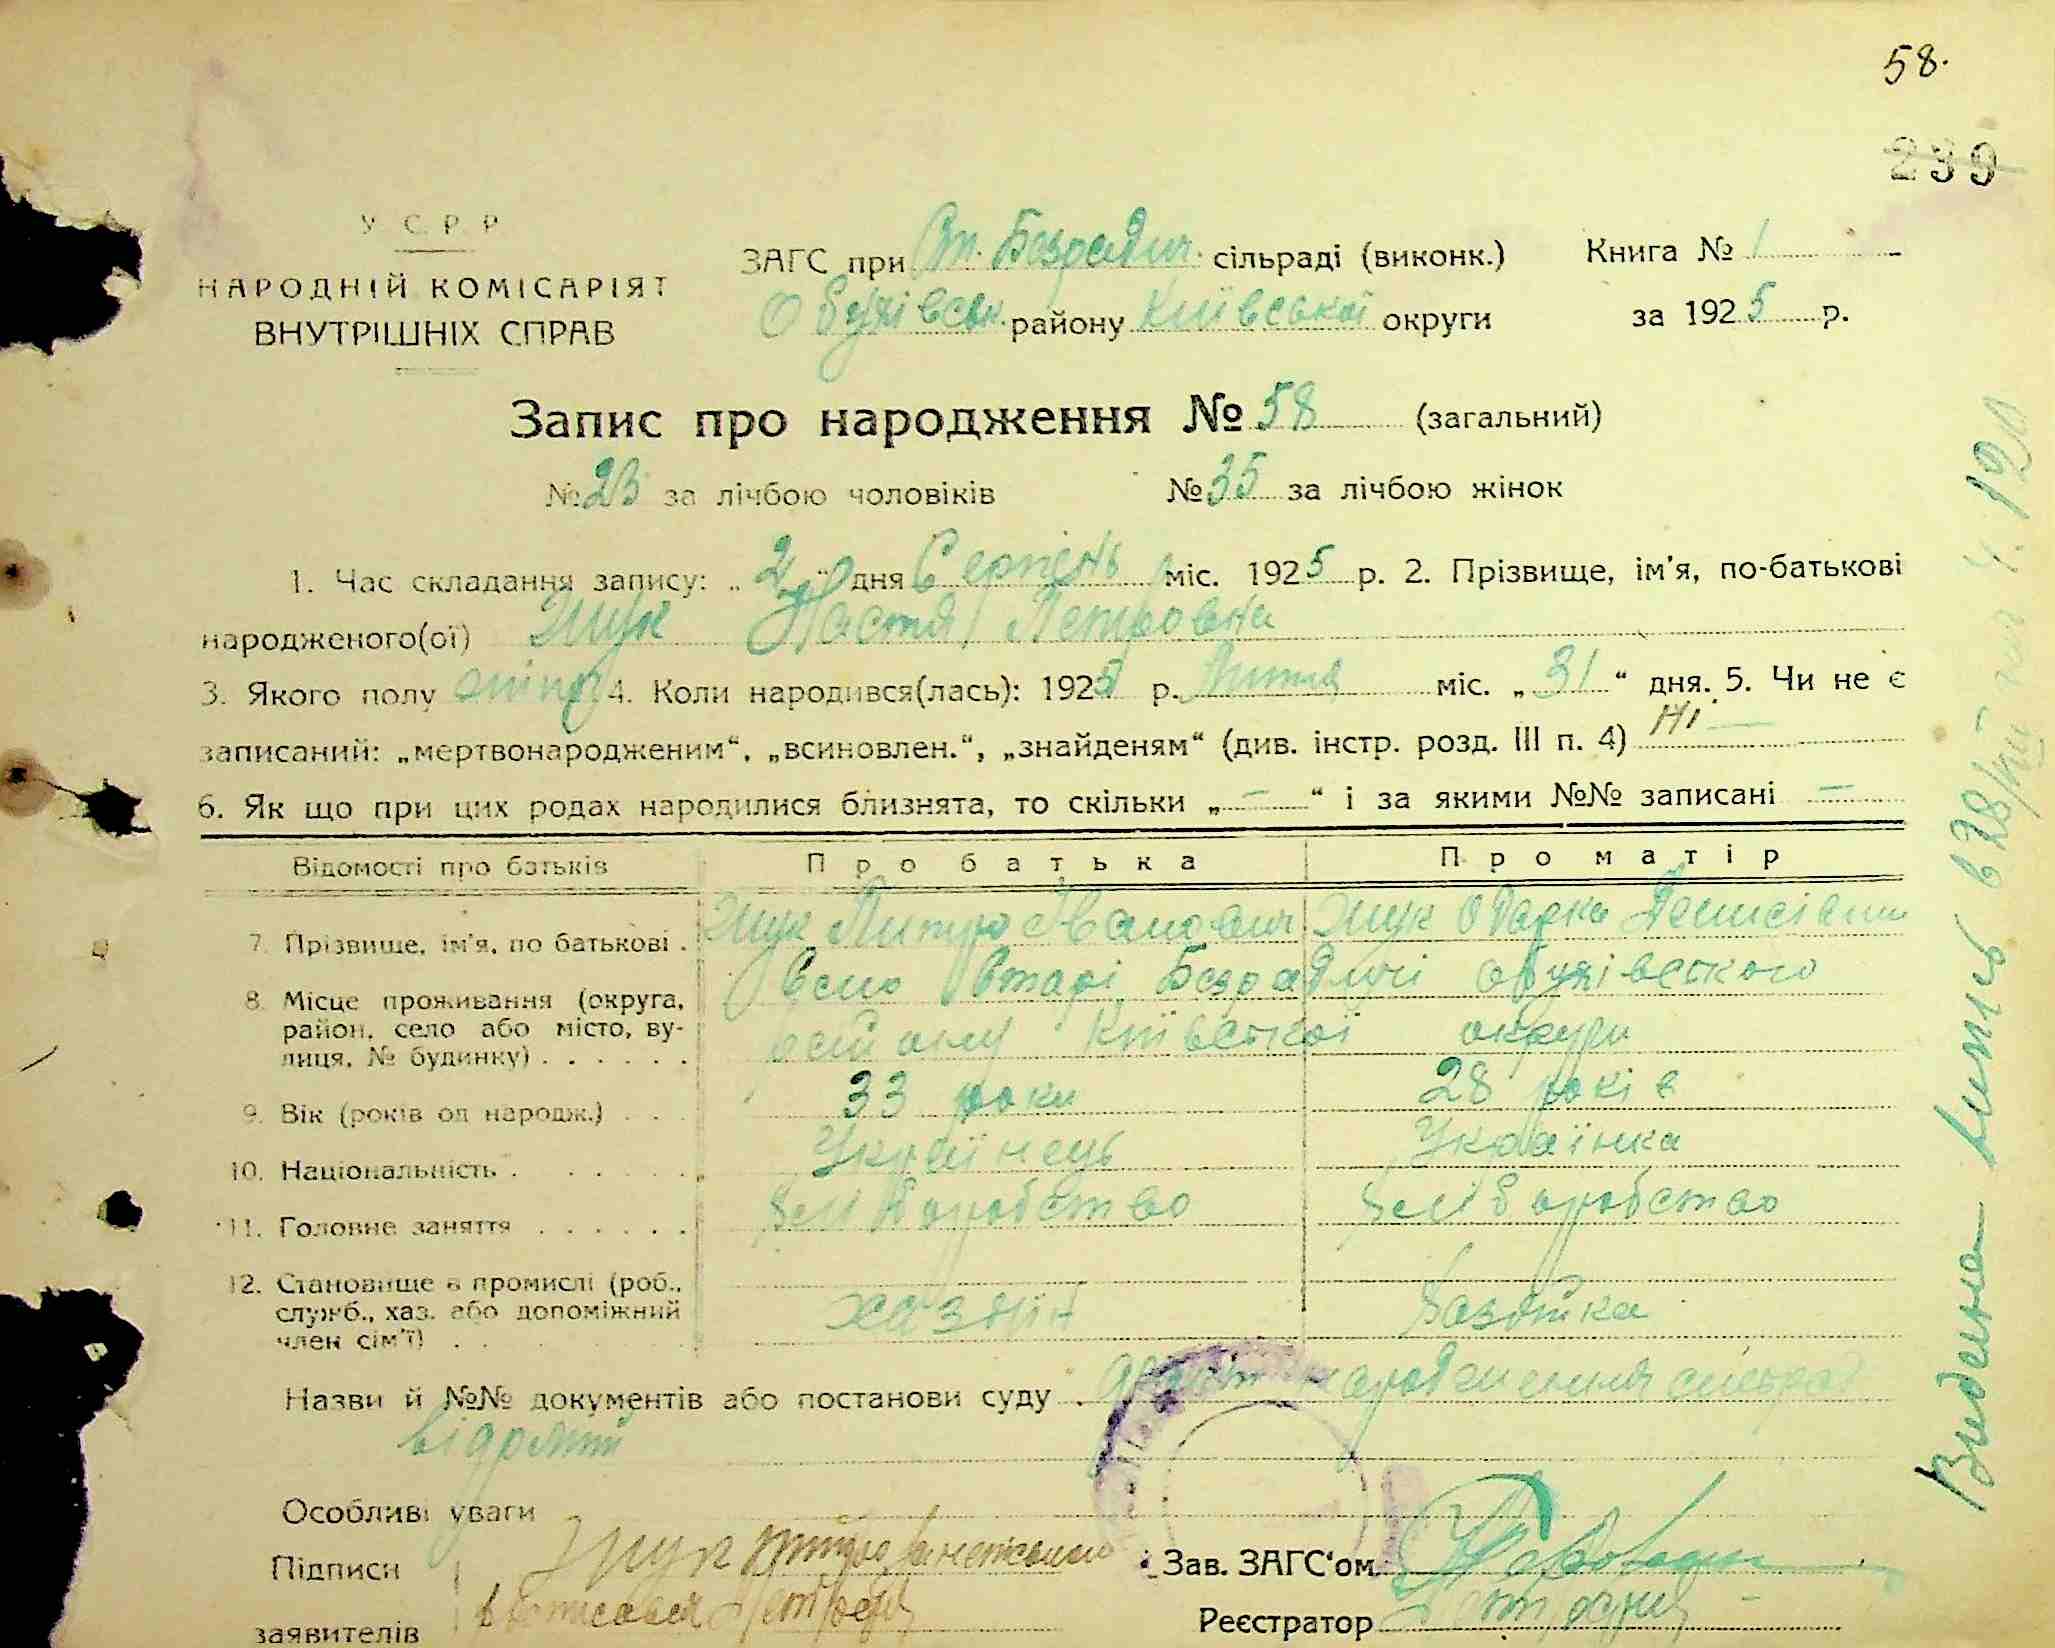 58.
239
У С Р Р
НАРОДНІЙ КОМІСАРІЯТ
ВНУТРІШНІХ СПРАВ
ЗАГС при Ст. Безрадич. сільраді (виконк.) Книга № 1
Обухівськ. району Київської округи за 1925 р.
Запис про народження № 58 (загальний)
№ 23 за лічбою чоловіків № 35 за лічбою жінок
1. Час складання запису: „2“ дня Серпень міс. 1925 р. 2. Прізвище, ім'я, по-батькові
народженого(ої) Жук Настя Петровна
3. Якого полу жіноч 4. Коли народився(лась): 1925 р. Липня міс. „31“ дня. 5. Чи не є
записаний: „мертвонародженим“, „всиновлен.“, „знайденям“ (див. інстр. розд. III п. 4) Ні
6. Як що при цих родах народилися близнята, то скільки „—“ і за якими №№ записані —
Відомості про батьків Про батька Про матір
7. Прізвище, ім'я, по батькові . Жук Іванович Жук Одарка
8. Місце проживання (округа, район, село або місто, вулиця, № будинку) . . . . . . Село Старі Безрадичі Обухівского
району Київської округи
9. Вік (років од народж.) . . . 33 роки 28 років
10. Національність . . . . . . Українець Українка
11. Головне заняття . . . . . . Хліборобство Хліборобство
12. Становище в промислі (роб., служб., хаз. або допоміжний член сім'ї) . . хазяїн хазяйка
Назви й №№ документів або постанови суду . народження
відомий
Особливі уваги
Підписи Жук
заявителів
Зав. ЗАГС'ом
Реєстратор
Видана